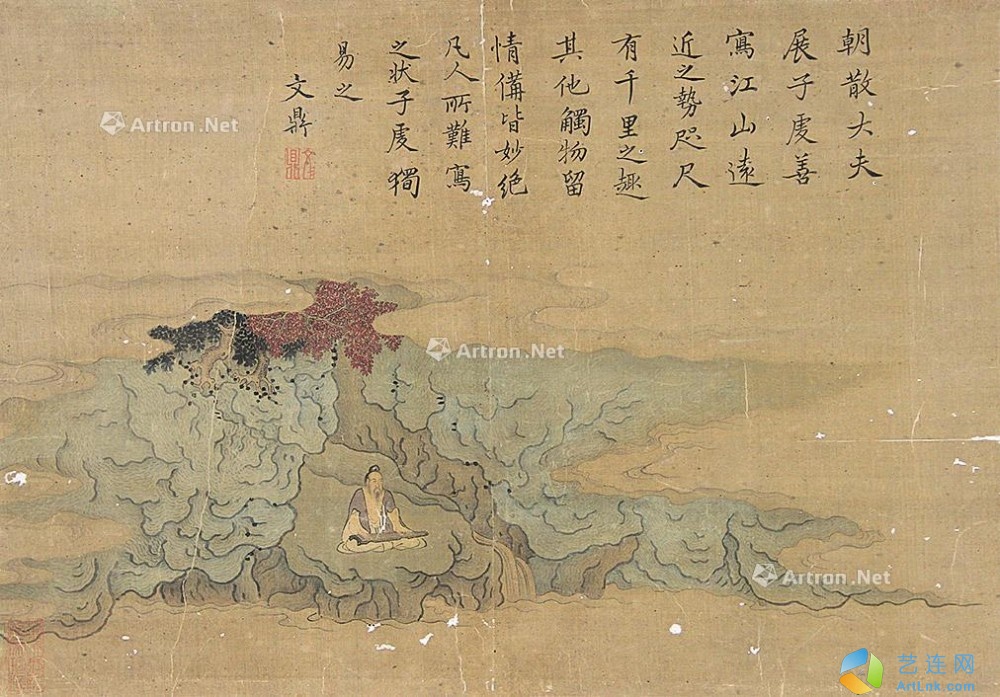 朝散大夫
展子虔善
寫江山遠
近之勢咫尺
有千里之趣
其他觸物留
情備皆妙絶
凡人所難寫
之状子虔獨
易之
文鼎
文鼎
Artron.Net
Artron.Net
Artron.Net
艺连网
ArtLnk.com